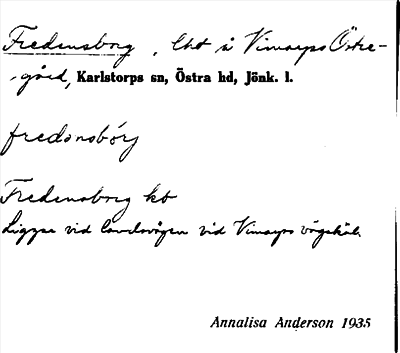 Fredensborg, lht å Vimarps Östre-
gård, Karlstorps sn, Östra hd, Jönk. l.
fredənsbórj
Fredensborg kt
Ligger vid landsvägen vid Vimarps vägskäl.
Annalisa Anderson 1935